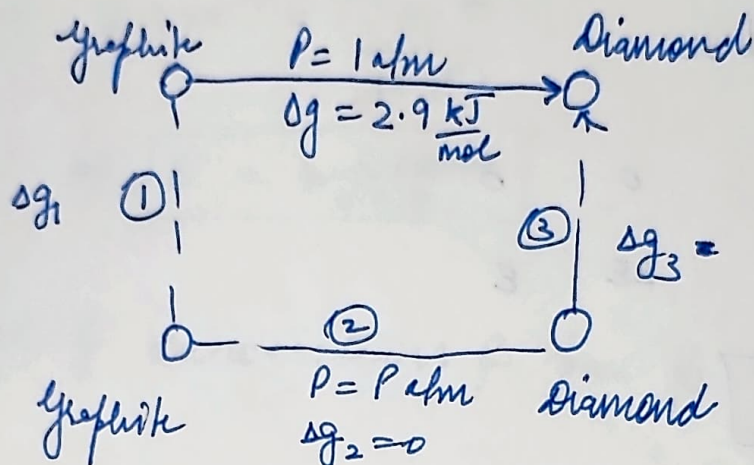 Graphite P = 1 atm Diamond
Δg = 2.9 kJ/mol
Δg₁ ① ③ Δg₃ =
②
Graphite P = P atm Diamond
Δg₂ = 0